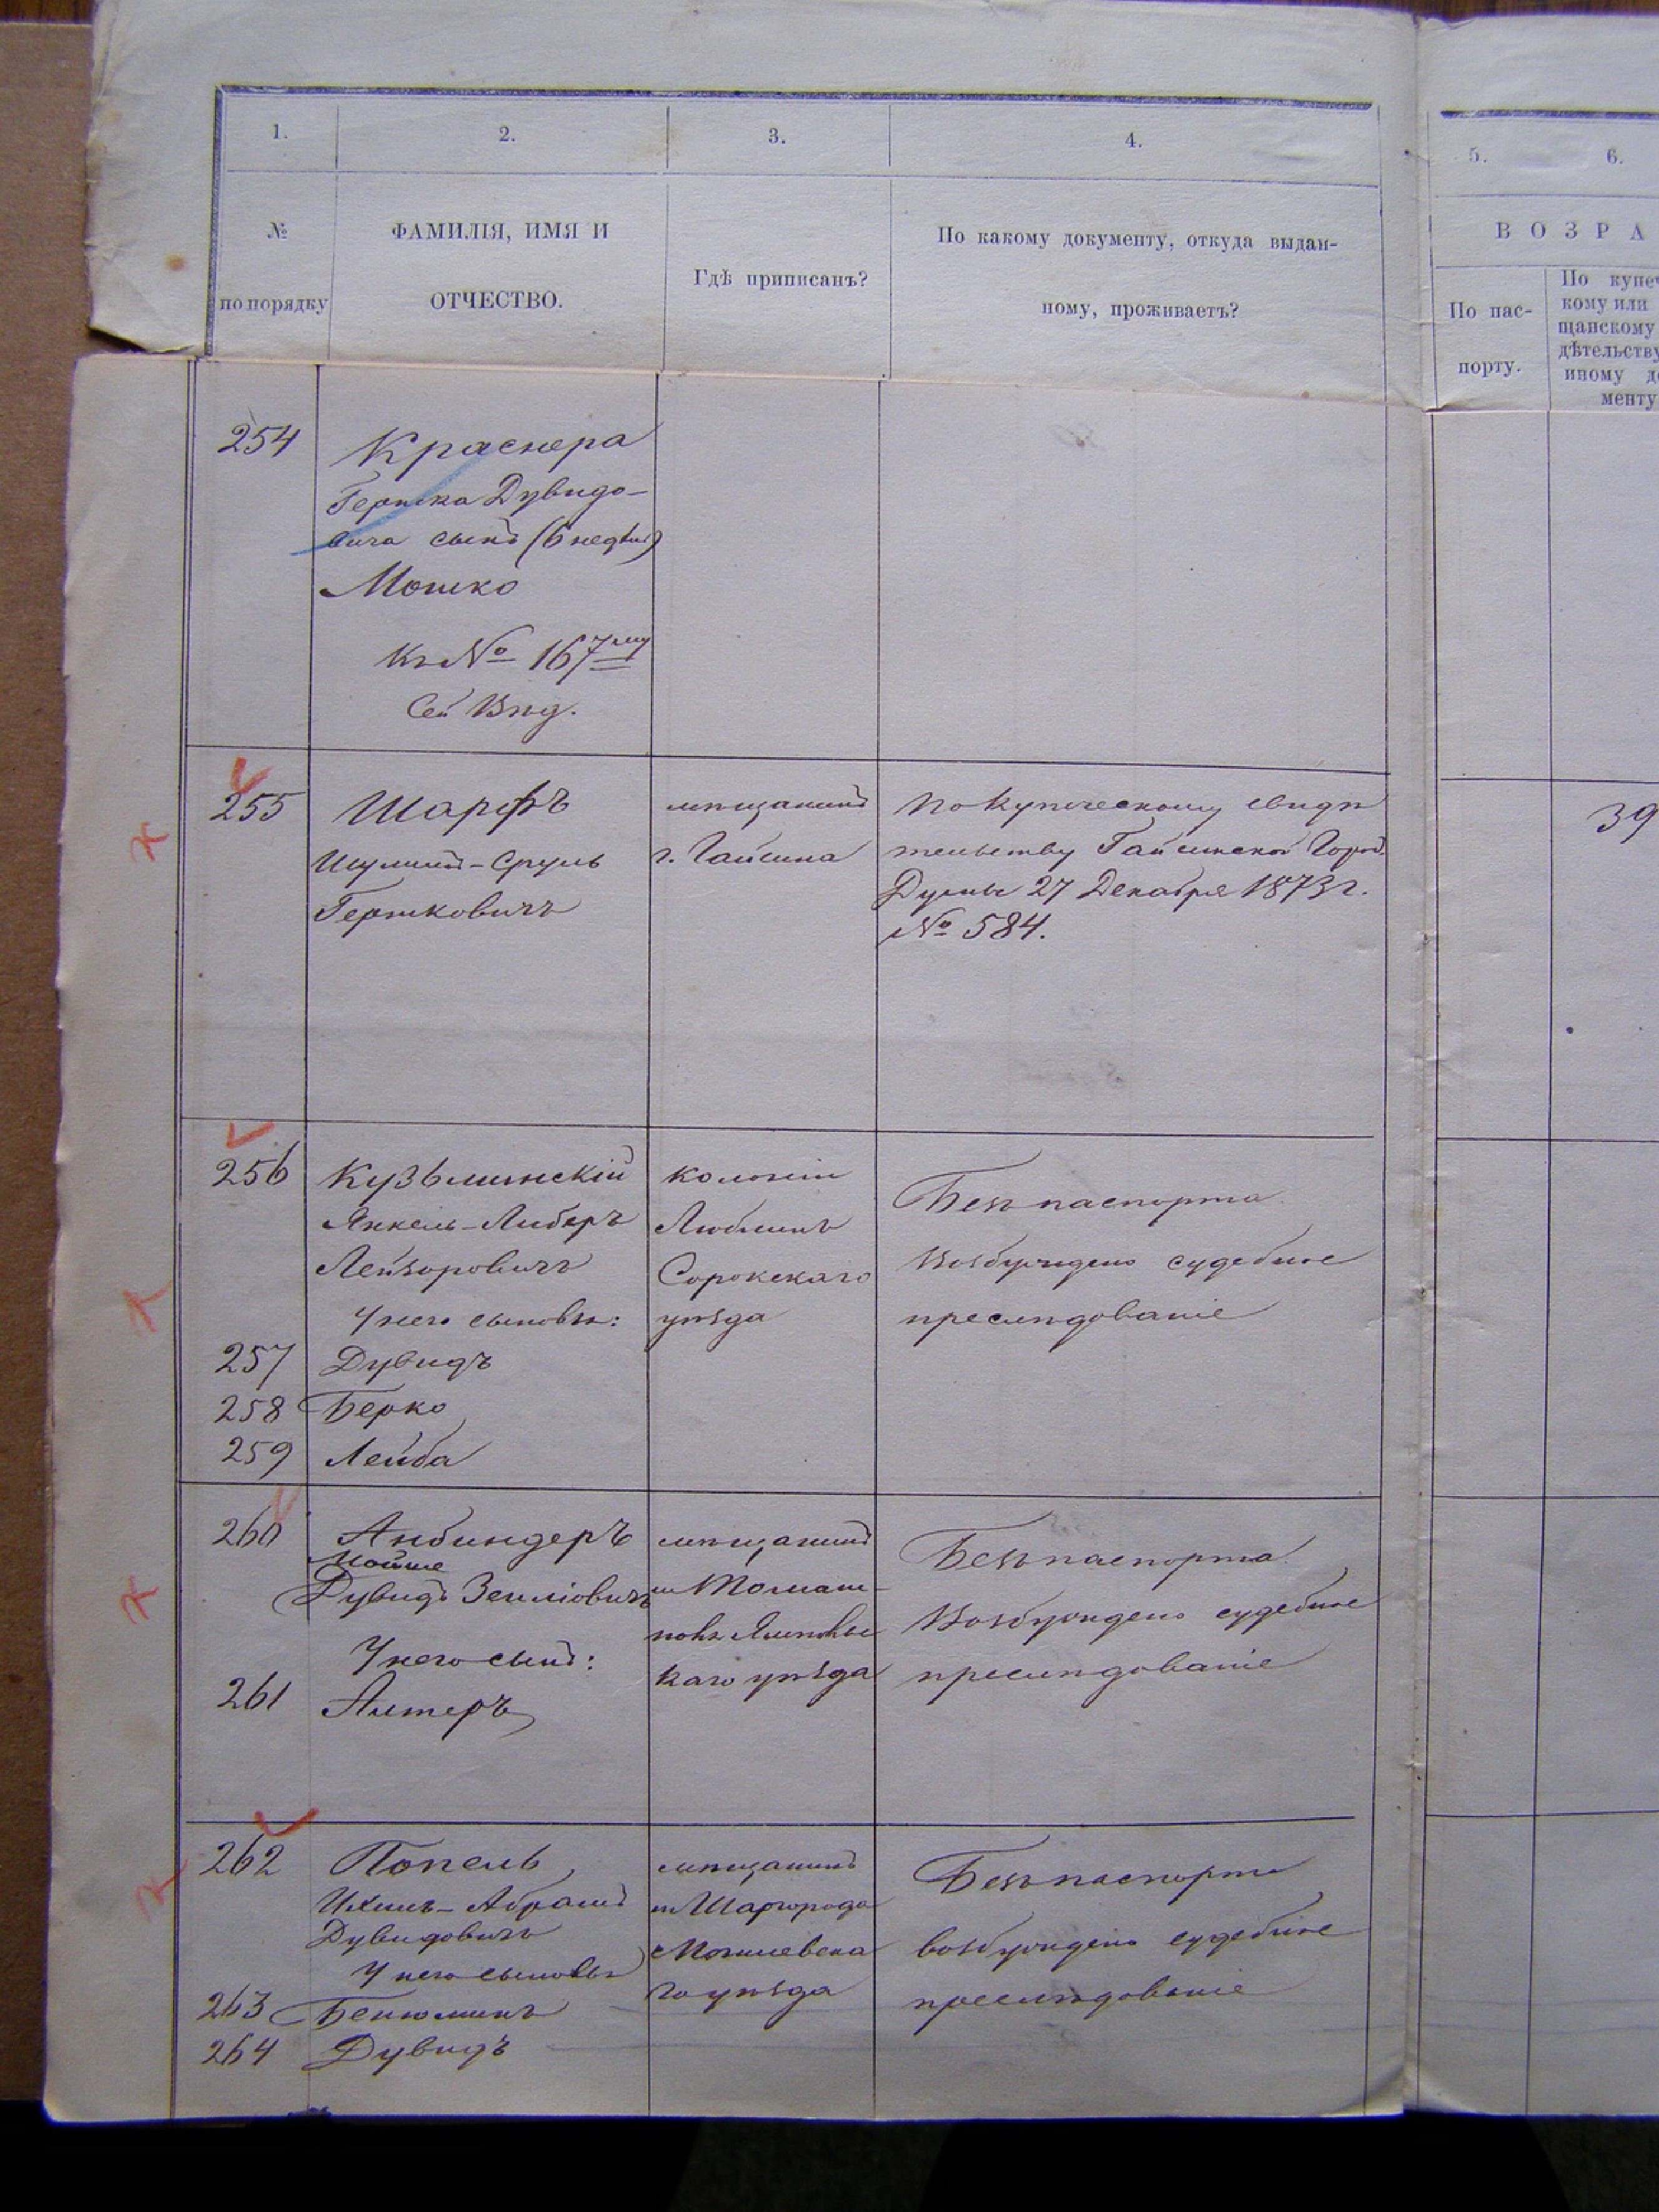 1.
2.
3.
4.
5.
6.
№
по порядку
ФАМИЛІЯ, ИМЯ И
ОТЧЕСТВО.
Гдѣ приписанъ?
По какому документу, откуда выдан-
ному, проживаетъ?
ВОЗРА
По пас-
порту.
По купеч
кому или
щанскому
дѣтельству
иному до
менту
254
Краснера
Гершка Дувидо-
вича сынъ (6 недѣль)
Мошко
Къ № 167му
255
Шарфъ
Шулимъ-Сруль
Гершковичъ
мѣщанинъ
г. Гайсина
по купеческому свидѣ
тельству Гайсинской Город.
Думы 27 Декабря 1873 г.
№ 584.
39
256
Кузьминскій
Янкель-Либеръ
Лейзоровичъ
У него сыновья:
257 Дувидъ
258 Берко
259 Лейба
колоніи
Люблинъ
Сорокскаго
уѣзда
Безъ паспорта
Возбуждено судебное
преслѣдованіе
260
Анбиндеръ
Мойше
Дувидъ Зейліовичъ
У него сынъ:
261 Алтеръ
мѣщанинъ
м. Томаш-
поль Ямполь
каго уѣзда
Безъ паспорта
Возбуждено судебное
преслѣдованіе
262
Попель
Ихиль-Абрамъ
Дувидовичъ
У него сыновья
263 Бенюминъ
264 Дувидъ
мѣщанинъ
м. Шаргорода
Могилевска
го уѣзда
Безъ паспорта
возбуждено судебное
преслѣдованіе